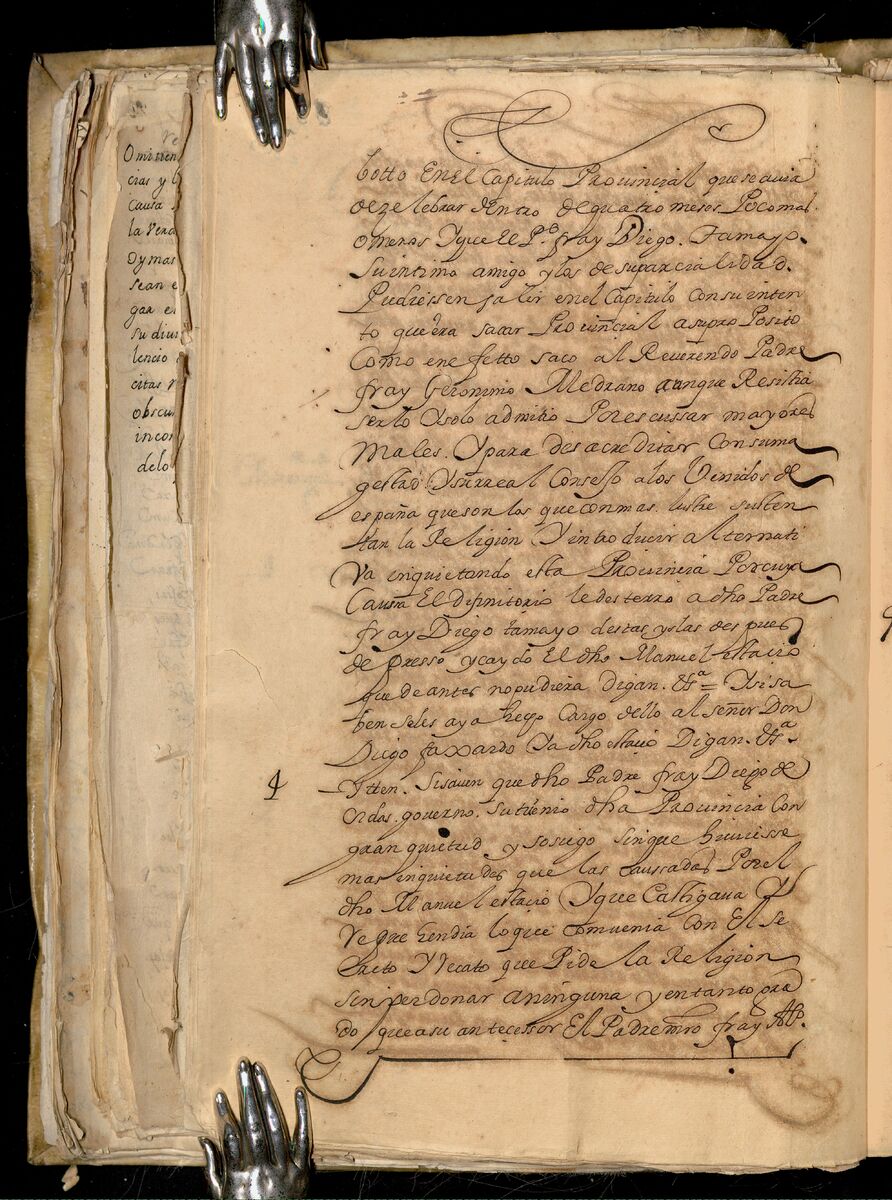 Omisien
cias y b
causa
la verd
Dymas
sean e
gar el
su divi
lencio
citas
obscu
incon
delo
botto En El Capitulo Provinzial que se avia
de ze lebrar dentro de quatro meses Poco mas
o menos Y que El Pᵉ fray Diego Tamayo
su intimo amigo y los de su parcialidad
Pudiessen salir en el Capitulo Con su inten
to que era sacar Provincial a su pro Posito
Como en efetto saco al Reverendo Padre
fray Geronimo Medrano aunque Resistia
serlo Y solo admitio Por escussar mayores
Males. Y para desacreditar Con su ma
gestad Y su rreal Consejo a los Venidos de
españa que son los que con mas lustre susten
tan la Religion Y introducir alternati
va inquietando esta Provincia Por cuya
Causa El difinitorio le desterro a dho Padre
fray Diego tamayo destas yslas despues
de presso y caydo El dho Manuel estacio
que de antes no pudiera digan. &ᵃ = Y si sa
ben seles aya hecho Cargo dello al señor Don
Diego faxardo Y a dho estacio Digan. &ᵃ
4
Ytten. Si saven que dho Padre fray Diego de
Ordas. governo. su trienio dha Provincia Con
gran quietud y sosiego sin que huviesse
mas inquietudes que las caussadas Por el
dho Manuel estacio Y que Castigava Y
Re prehendia lo que combenia con El se
creto Y recato que Pide la Religion
sin perdonar a ninguna y en tanto gra
do que a su antecessor El Padre mro fray Alº.